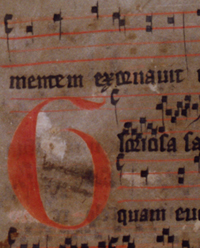 mentem exornauit
Gloriosa sa
quam eu